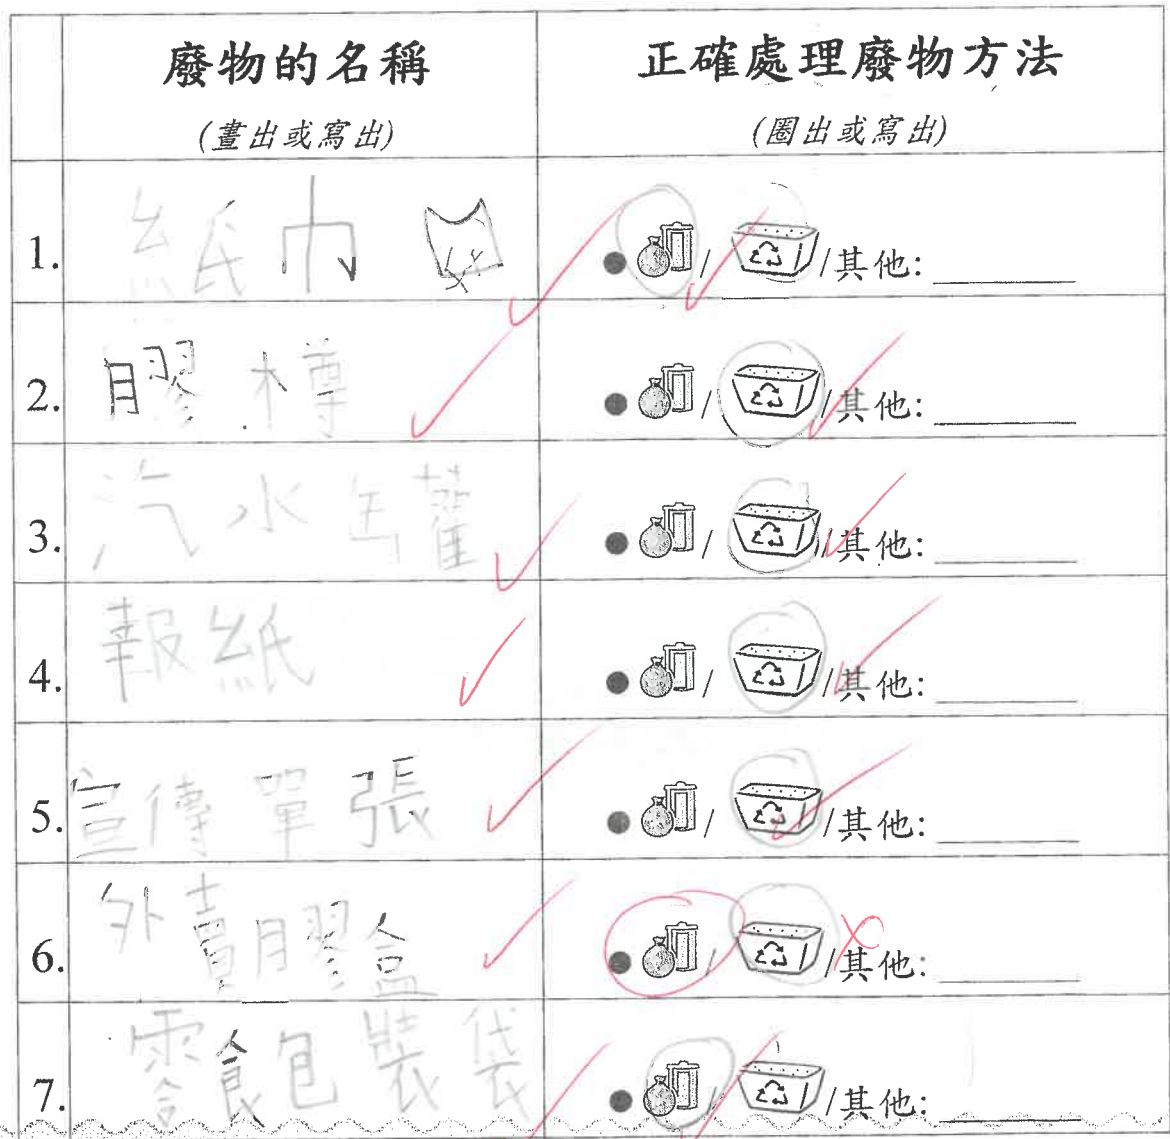 廢物的名稱
(畫出或寫出)
正確處理廢物方法
(圈出或寫出)
1. 紙巾
/ /其他: ________
2. 膠樽
/ /其他: ________
3. 汽水缶罐
/ /其他: ________
4. 報紙
/ /其他: ________
5. 宣傳單張
/ /其他: ________
6. 外賣膠盒
/ /其他: ________
7. 零食包裝袋
/ /其他: ________